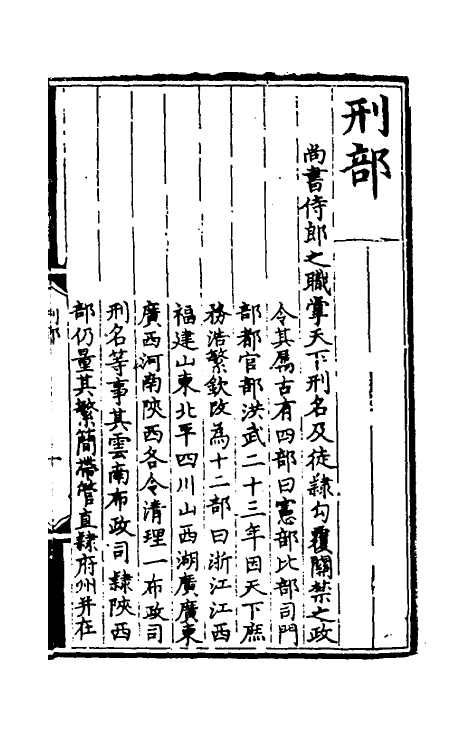 刑部
尚書侍郎之職掌天下刑名及徒隸勾覆關禁之政
令其屬古有四部曰憲部比部司門
部都官部洪武二十三年因天下庶
務浩繁欽改為十二部曰浙江江西
福建山東北平四川山西湖廣廣東
廣西河南陝西各令清理一布政司
刑名等事其雲南布政司隸陝西
部仍量其繁簡帶管直隸府州并在
刑部